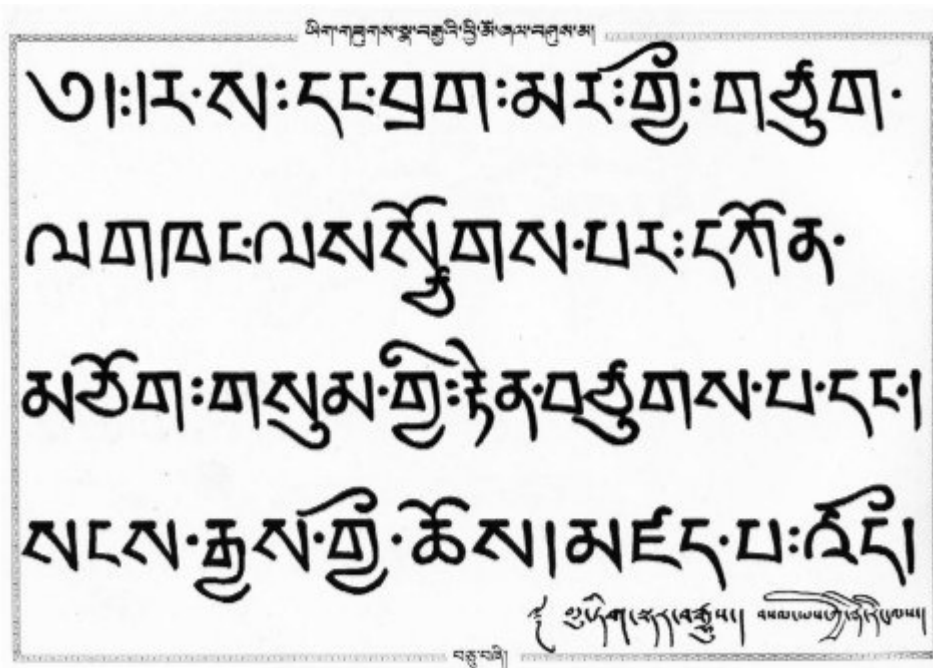 ཡིག་གཟུགས་སྣ་བརྒྱའི་ཕྱི་མོ་ཞལ་བཤུས་མ།
༄།:།ར་ས:དང་བྲག:མར:གྱྀ:གཙུག་
ལགཁང་ལསསྩོགས་པར:དཀོན་
མཅོག:གསུམ་གྱྀ:རྟེན་བཙུགས་པ་དང་།
སངས་རྒྱས་གྱྀ་ཆོས།མཛད་པ:འདྀ།
བཅུ་བཞི།